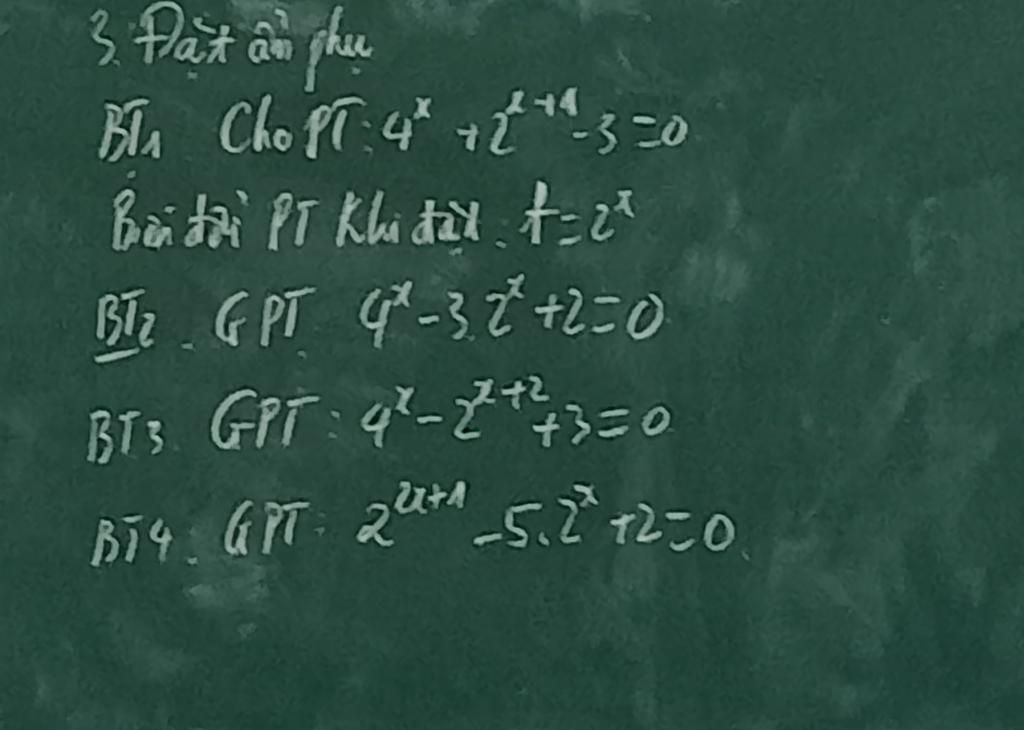 3. Đặt ẩn phụ
BT1 Cho PT: 4ˣ + 2ˣ⁺¹ - 3 = 0
Biến đổi PT Khi đặt: t = 2ˣ
BT2. GPT 4ˣ - 3.2ˣ + 2 = 0
BT3 GPT: 4ˣ - 2ˣ⁺² + 3 = 0
BT4. GPT: 2²ˣ⁺¹ - 5.2ˣ + 2 = 0.